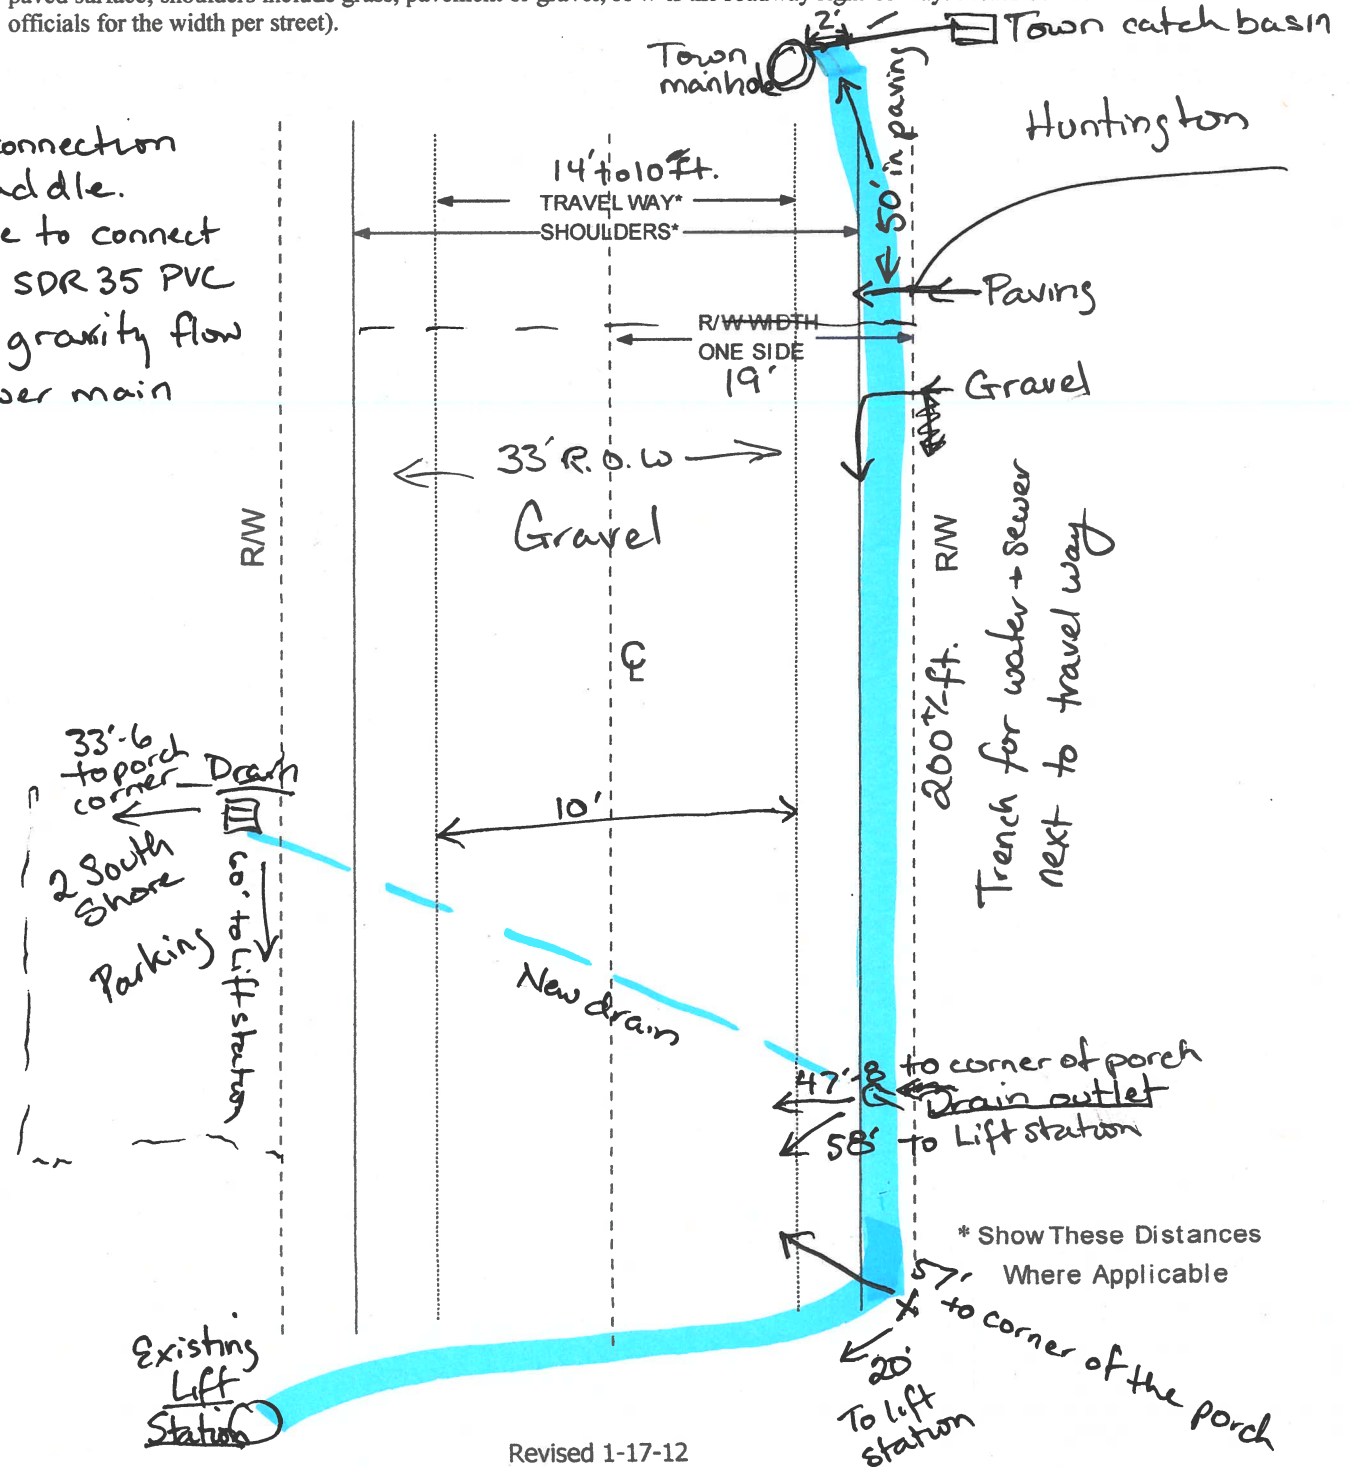 officials for the width per street).
2'
Town catch basin
Town
manhole
Huntington
onnection
addle.
e to connect
SDR 35 PVC
gravity flow
wer main
14' to 10 ft.
TRAVEL WAY*
SHOULDERS*
50' in paving
Paving
R/W WIDTH
ONE SIDE
19'
Gravel
33' R.O.W
Gravel
R/W
R/W
℄
200 +/- ft.
Trench for water + sewer
next to travel way
33'-6
to porch
corner
Drain
10'
2 South
Shore
Parking
60' to Lift station
New drain
47'-8 to corner of porch
Drain outlet
58' to Lift station
* Show These Distances
Where Applicable
57'
to corner of the porch
X
20'
To lift
station
Existing
Lift
Station
Revised 1-17-12